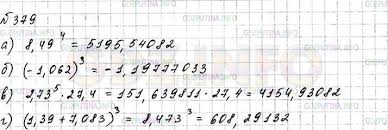 №379
а) 8,49⁴ = 5195,54082
б) (-1,062)³ = -1,19777033
в) 2,73⁵ · 27,4 = 151,639811 · 27,4 = 4154,93082
г) (1,39 + 7,083)³ = 8,473³ = 608,29132